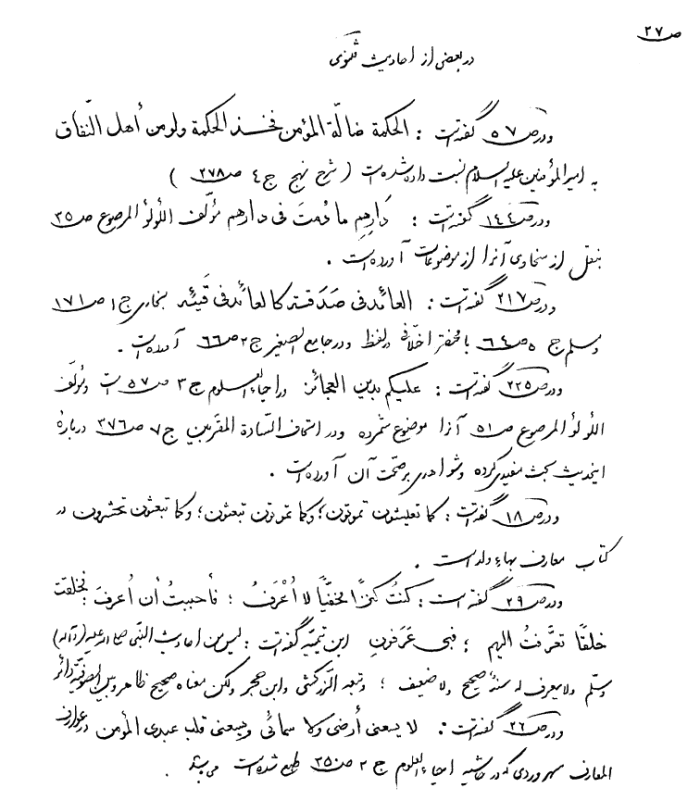 ص ۲۷
در بعض از احادیث مثنوی
ودر ص ۵۷ گفته است : الحکمة ضالّة المؤمن فخذ الحکمة ولو من أهل النّفاق
به امیرالمؤمنین علیه السلام نسبت داده شده است ( شرح نهج ج ٤ ص ۲۷۸ )
ودر ص ۱٤٤ گفته است : دَارِهِم ما دُمتَ فی دارهم مؤلّف اللؤلؤ المرصوع ص ۳۵
بنقل از سخاوی آنرا از موضوعات آورده است .
ودر ص ۲۱۷ گفته است : العائد فی صَدَقته کالعائد فی قَیئه بخاری ج ۱ ص ۱۷۱
ومسلم ج ۵ ص ٦٤ با مختصر اختلافی در لفظ ودر جامع الصغیر ج ۲ ص ٦٦ آورده است .
ودر ص ۲۲۵ گفته است : علیکم بدین العجائز در احیاء العلوم ج ۳ ص ۵۷ است ومؤلّف
اللؤلؤ المرصوع ص ۵۱ آنرا موضوع شمرده ودر اتحاف السّادة المتّقین ج ۷ ص ۳۷٦ درباره
اینحدیث بحث مفیدی کرده وشواهدی بر صحّت آن آورده است .
ودر ص ۱۸ گفته است : کما تعیشون تموتون ؛ وکما تموتون تبعثون ؛ وکما تبعثون تحشرون در
کتاب معارف بهاء ولد است .
ودر ص ۲۹ گفته است : کُنتُ کنزًا مخفیًّا لا اُعْرَفُ ؛ فأحببتُ أن اُعرفَ فخلقت
خلقًا تعرَّفتُ الیهم ؛ فبی عَرَفونِ ابن تیمیّه گفته است : لیس من احادیث النّبی صلی الله علیه (وآله)
وسلّم ولا یعرف له سند صحیح ولا ضعیف ؛ وتبعه الزّرکشی وابن حجر ولکن معناه صحیح ظاهر وبین الصوفیّة دائر
ودر ص ۲٦ گفته است : لا یسعنی أرضی ولا سمائی ویسعنی قلب عبدی المؤمن در عوارف
المعارف سهروردی که در حاشیه احیاء العلوم ج ۲ ص ۲۵۰ طبع شده است میباشد .